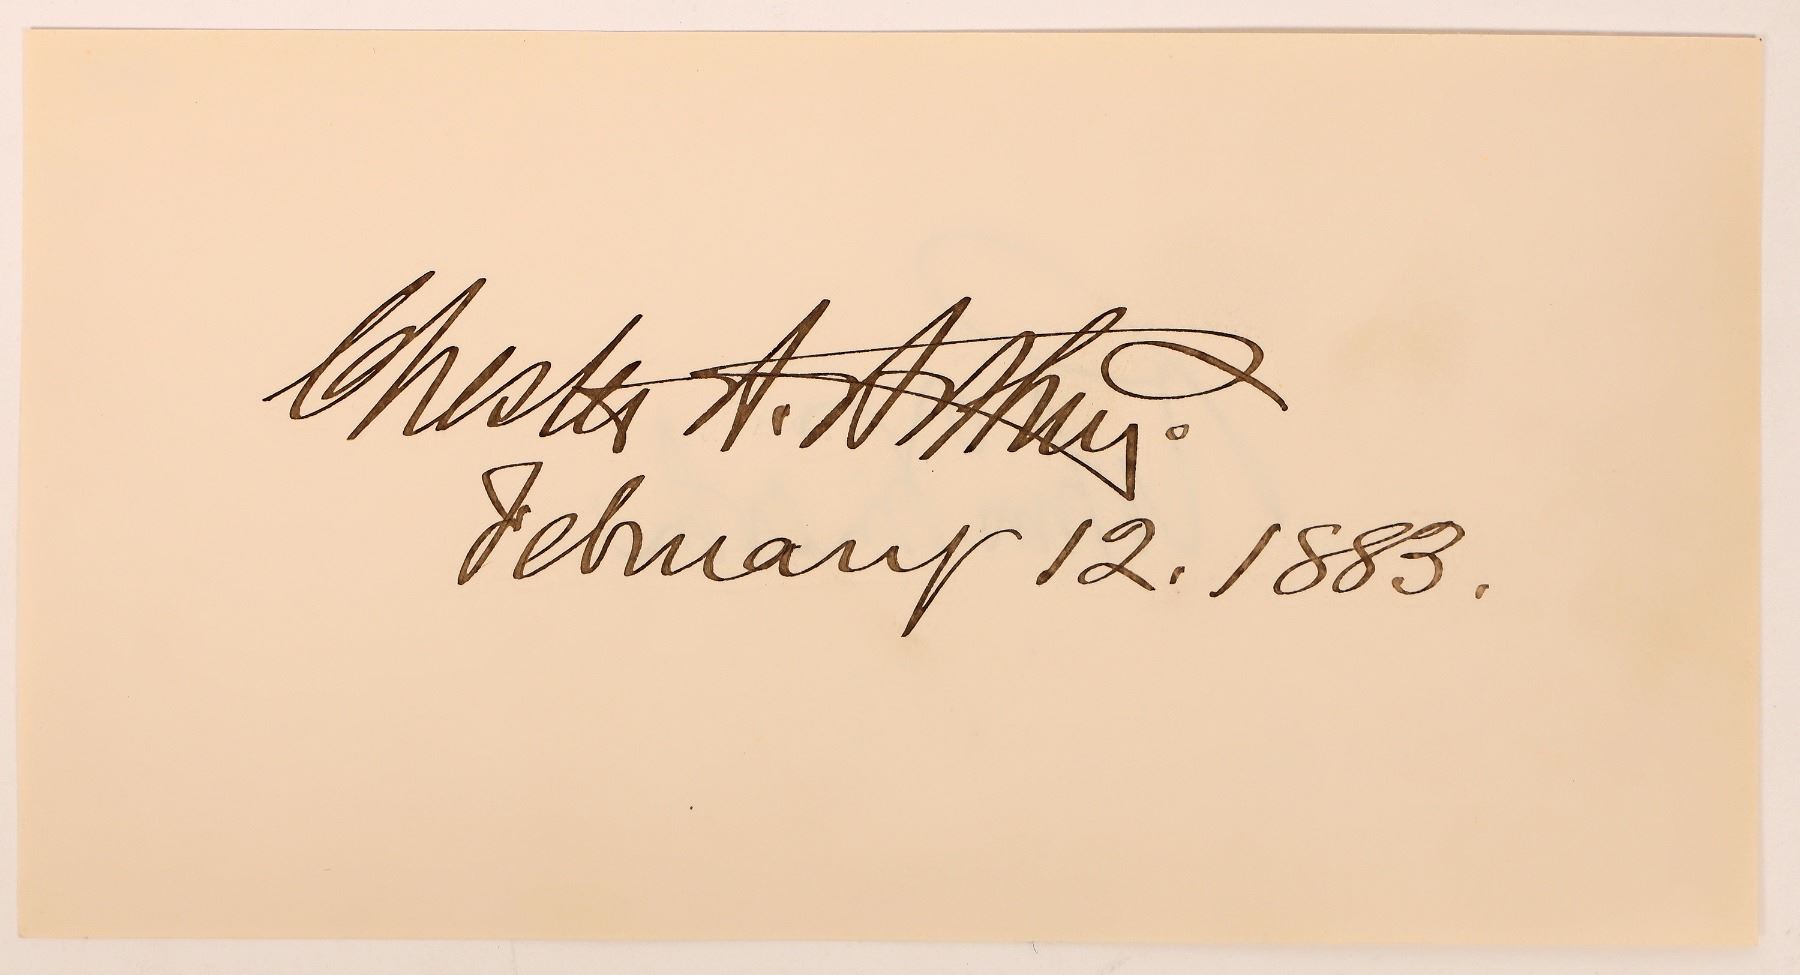 Chester A. Arthur.
February 12. 1883.